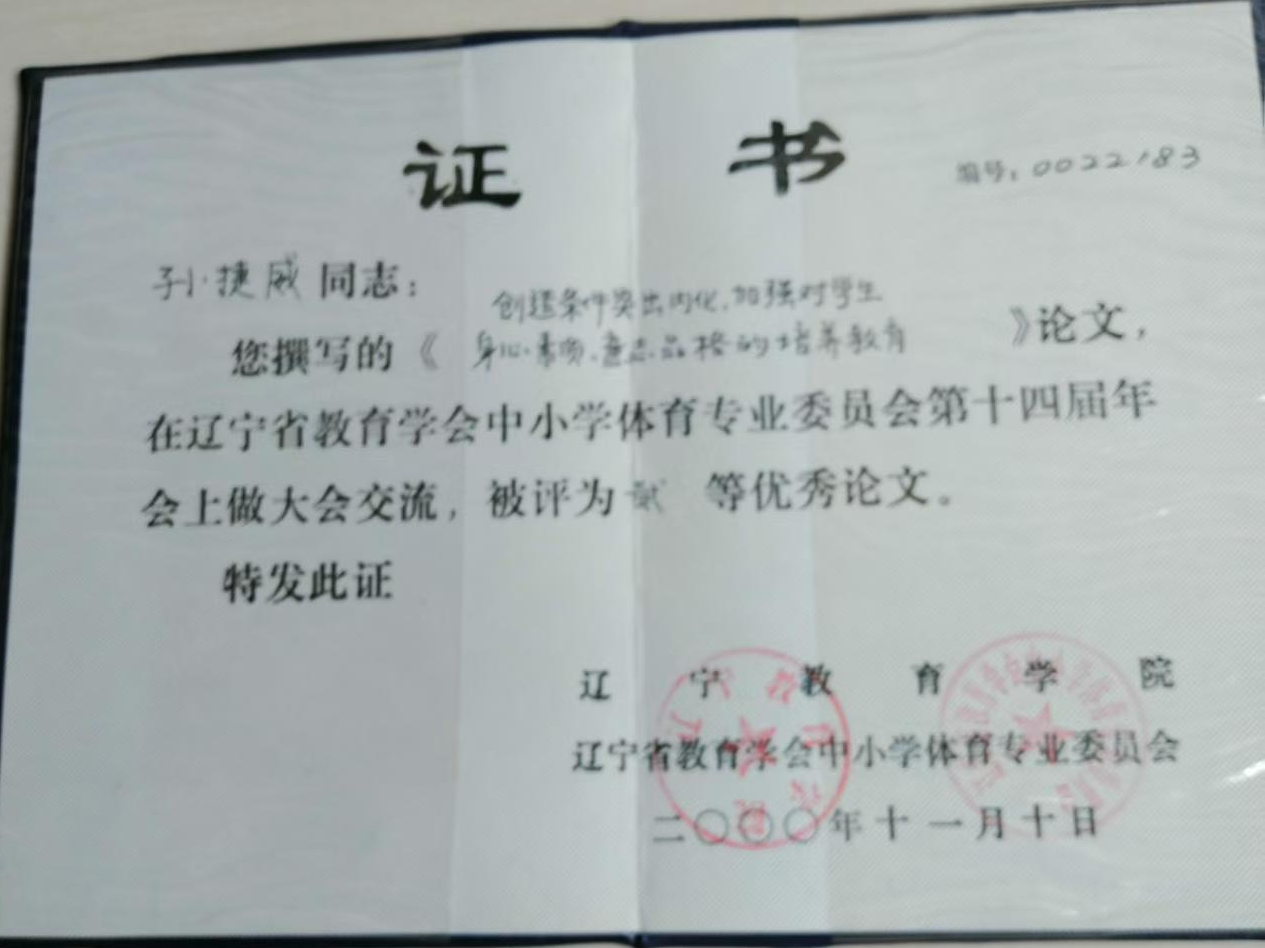 证 书
编号：0022183
孙捷威同志：
创造条件突出内化，加强对学生
您撰写的《身心素质、意志品格的培养教育》论文，
在辽宁省教育学会中小学体育专业委员会第十四届年
会上做大会交流，被评为贰等优秀论文。
特发此证
辽宁教育学院
辽宁省教育学会中小学体育专业委员会
二〇〇〇年十一月十日